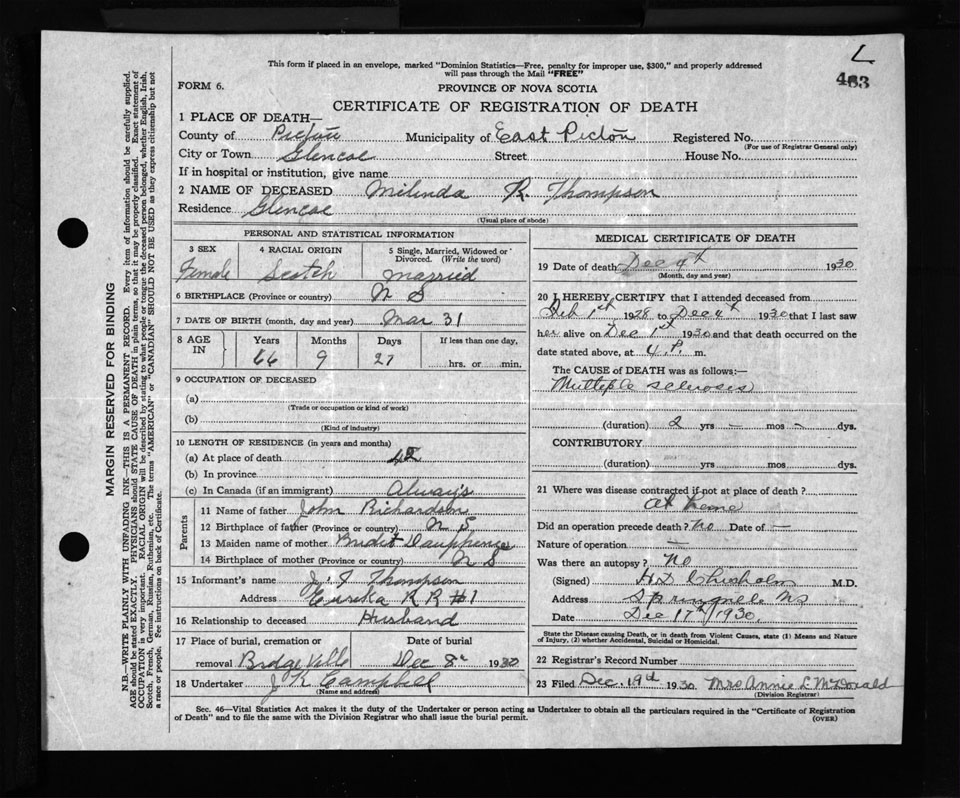 L
463
This form if placed in an envelope, marked "Dominion Statistics—Free, penalty for improper use, $300," and properly addressed
will pass through the Mail "FREE"
FORM 6.
PROVINCE OF NOVA SCOTIA
CERTIFICATE OF REGISTRATION OF DEATH
1 PLACE OF DEATH—
County of Pictou Municipality of East Pictou Registered No.
(For use of Registrar General only)
City or Town Glencoe Street House No.
If in hospital or institution, give name
2 NAME OF DECEASED Milinda R Thompson
Residence Glencoe
(Usual place of abode)
PERSONAL AND STATISTICAL INFORMATION
3 SEX 4 RACIAL ORIGIN 5 Single, Married, Widowed or Divorced. (Write the word)
Female Scotch Married
6 BIRTHPLACE (Province or country) N S
7 DATE OF BIRTH (month, day and year) Mar 31
8 AGE IN Years Months Days If less than one day,
66 9 27 hrs. or min.
9 OCCUPATION OF DECEASED
(a)
(Trade or occupation or kind of work)
(b)
(Kind of industry)
10 LENGTH OF RESIDENCE (in years and months)
(a) At place of death
(b) In province
(c) In Canada (if an immigrant) Always
Parents
11 Name of father John Richardson
12 Birthplace of father (Province or country) N S
13 Maiden name of mother
14 Birthplace of mother (Province or country) N S
15 Informant's name J. Thompson
Address Eureka R R #1
16 Relationship to deceased Husband
17 Place of burial, cremation or removal Bridge Ville
Date of burial Dec 8 1930
18 Undertaker J K Campbell
(Name and address)
MEDICAL CERTIFICATE OF DEATH
19 Date of death Dec 4th 1930
(Month, day and year)
20 I HEREBY CERTIFY that I attended deceased from
Feb 1st 1928 to Dec 4th 1930 that I last saw
her alive on Dec 1st 1930 and that death occurred on the
date stated above, at 4 P. m.
The CAUSE of DEATH was as follows:—
Multiple sclerosis
(duration) 2 yrs — mos — dys.
CONTRIBUTORY
(duration) yrs mos dys.
21 Where was disease contracted if not at place of death?
At home
Did an operation precede death? No Date of —
Nature of operation —
Was there an autopsy? No
(Signed) H D Chisholm M.D.
Address Springville NS
Date Dec 17th 1930.
State the Disease causing Death, or in death from Violent Causes, state (1) Means and Nature
of Injury, (2) whether Accidental, Suicidal or Homicidal.
22 Registrar's Record Number
23 Filed Dec. 19th 1930 Mrs Annie L McDonald
(Division Registrar)
Sec. 46—Vital Statistics Act makes it the duty of the Undertaker or person acting as Undertaker to obtain all the particulars required in the "Certificate of Registration
of Death" and to file the same with the Division Registrar who shall issue the burial permit.
(OVER)
MARGIN RESERVED FOR BINDING
N.B.—WRITE PLAINLY WITH UNFADING INK—THIS IS A PERMANENT RECORD. Every item of information should be carefully supplied.
AGE should be stated EXACTLY. PHYSICIANS should STATE CAUSE OF DEATH in plain terms, so that it may be properly classified. Exact statement of
OCCUPATION is very important. RACIAL ORIGIN will be described by stating to what people or tongue the deceased person belonged, whether English, Irish,
Scotch, French, German, Russian, Ruthenian, etc. The terms "AMERICAN" or "CANADIAN" SHOULD NOT BE USED as they express citizenship but not
a race or people. See instructions on back of Certificate.